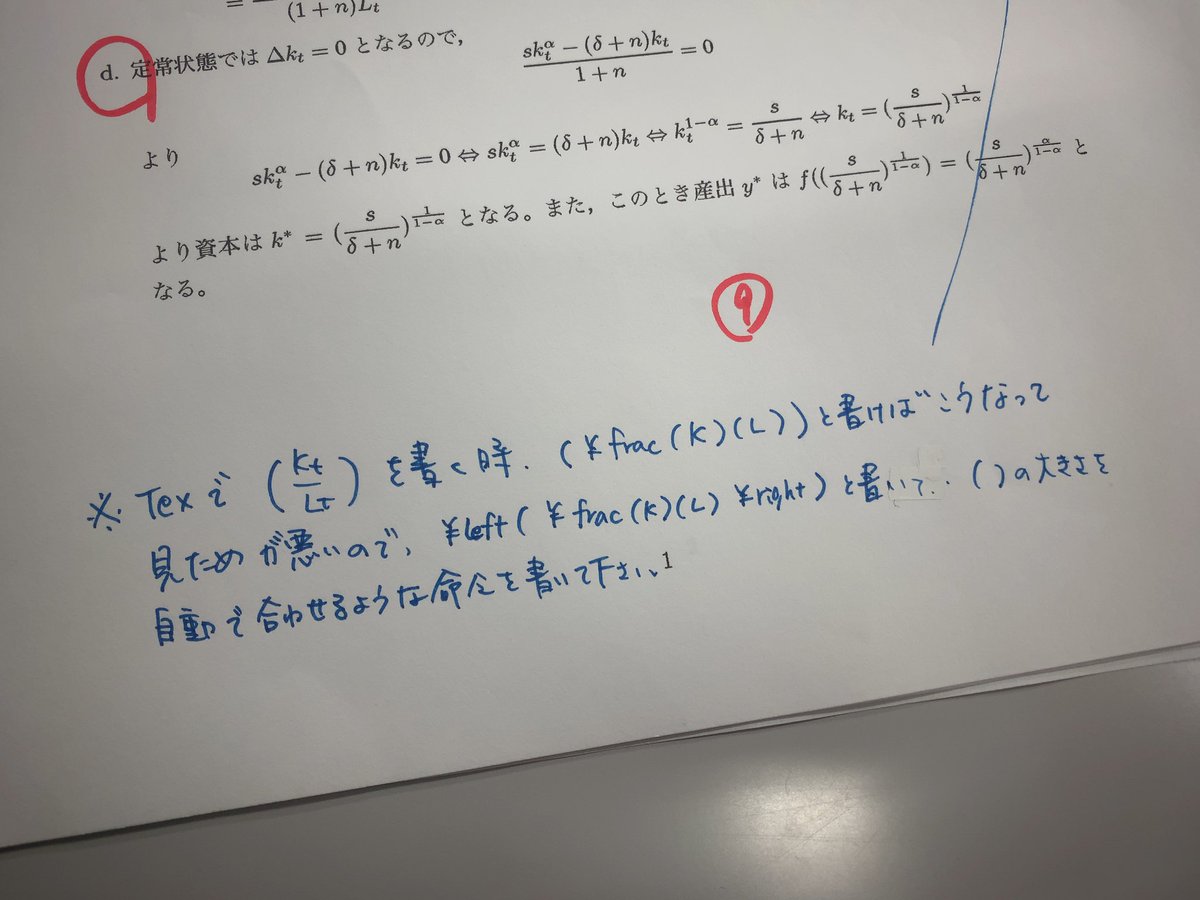 (1+n)L_t
d. 定常状態では Δk_t = 0 となるので,
\frac{sk_t^α − (δ+n)k_t}{1+n} = 0
より
sk_t^α − (δ+n)k_t = 0 ⇔ sk_t^α = (δ+n)k_t ⇔ k_t^{1−α} = \frac{s}{δ+n} ⇔ k_t = (\frac{s}{δ+n})^{\frac{1}{1−α}}
より資本は k^* = (\frac{s}{δ+n})^{\frac{1}{1−α}} となる。また, このとき産出 y^* は f((\frac{s}{δ+n})^{\frac{1}{1−α}}) = (\frac{s}{δ+n})^{\frac{α}{1−α}} と
なる。
9
※ Texで (\frac{K_t}{L_t}) を書く時. (¥frac(K)(L))と書けばこうなって
見ためが悪いので, ¥left(¥frac(K)(L)¥right)と書いて. ()の大きさを
自動で合わせるような命令を書いて下さい。
1